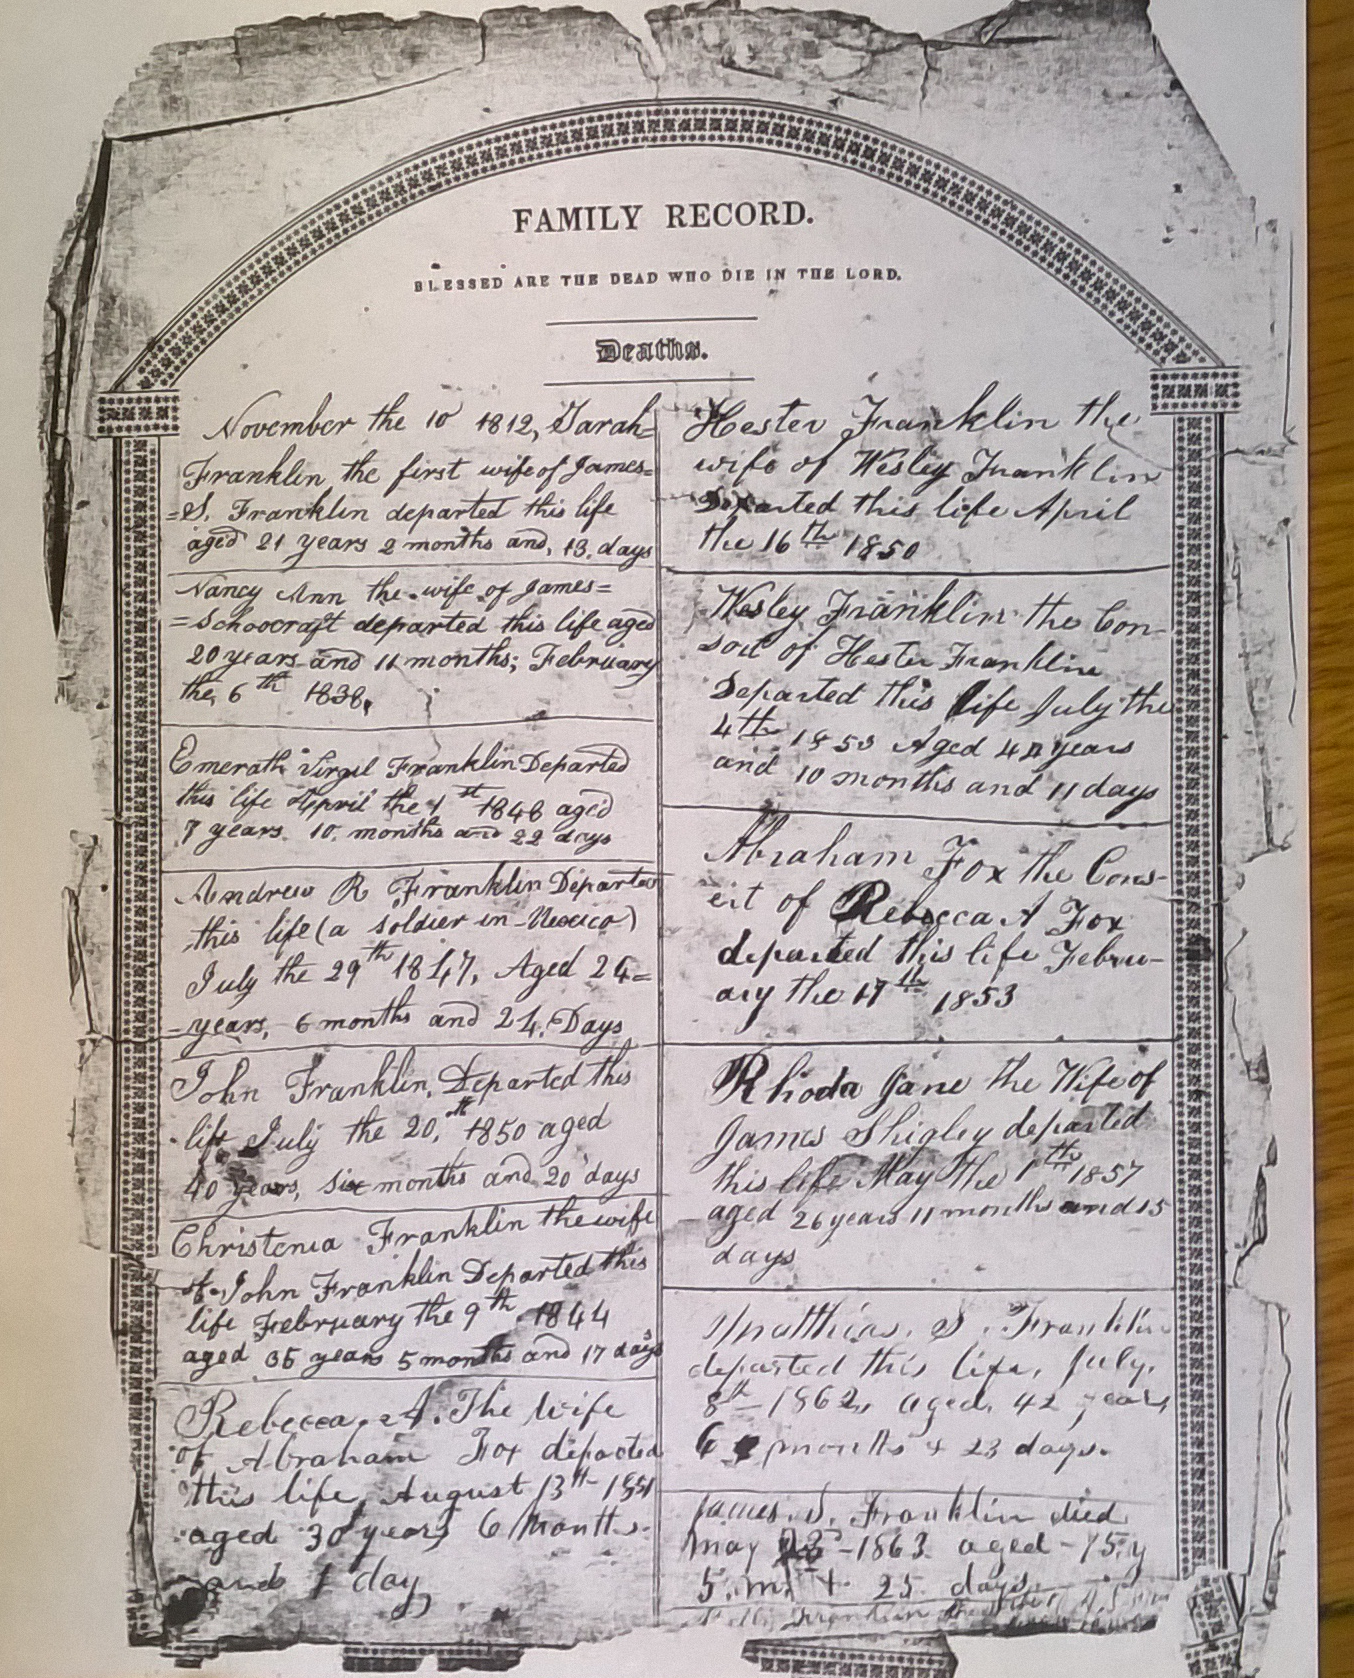 FAMILY RECORD.
BLESSED ARE THE DEAD WHO DIE IN THE LORD.
Deaths.
November the 10 1812, Sarah=
Franklin the first wife of James=
=S. Franklin departed this life
aged 21 years 2 months and, 13, days
Nancy Ann the wife of James=
=Schoocraft departed this life aged
20 years and 11 months; February
the, 6th 1838,
Emerath Virgil Franklin Departed
this life April the 1st 1848 aged
7 years 10. months and 22 days
Andrew R Franklin Departed
this life (a soldier in Mexico)
July the 29th 1847, Aged 24=
=years, 6 months and 24. Days
John Franklin, Departed this
life July the 20,th 1850 aged
40 years, six months and 20 days
Christenia Franklin the wife
of John Franklin Departed this
life February the 9th 1844
aged 35 years 5 months and 17 days
Rebecca. A. The wife
of Abraham Fox departed
this life, August 13th 1851
aged 30 years 6 Months.
and 1 day
Hester Franklin the
wife of Wesley Franklin
Departed this life April
the 16th 1850
Wesley Franklin the Con-
sort of Hester Franklin
Departed this life July the
4th 1853 Aged years
and 10 months and 11 days
Abraham Fox the Cons-
ert of Rebecca A Fox
departed this life Febru-
ary the 17th 1853
Rhoda Jane the Wife of
James Shigley departed
this life May the 1th 1857
aged 26 years 11 months and 15
days
Matthias. S. Franklin
departed this life, July.
8th 1862, aged, 42 years
6 months & 23 days.
James. S. Franklin died
May -1863 aged - 75. y
5. m. + 25. days.
Franklin